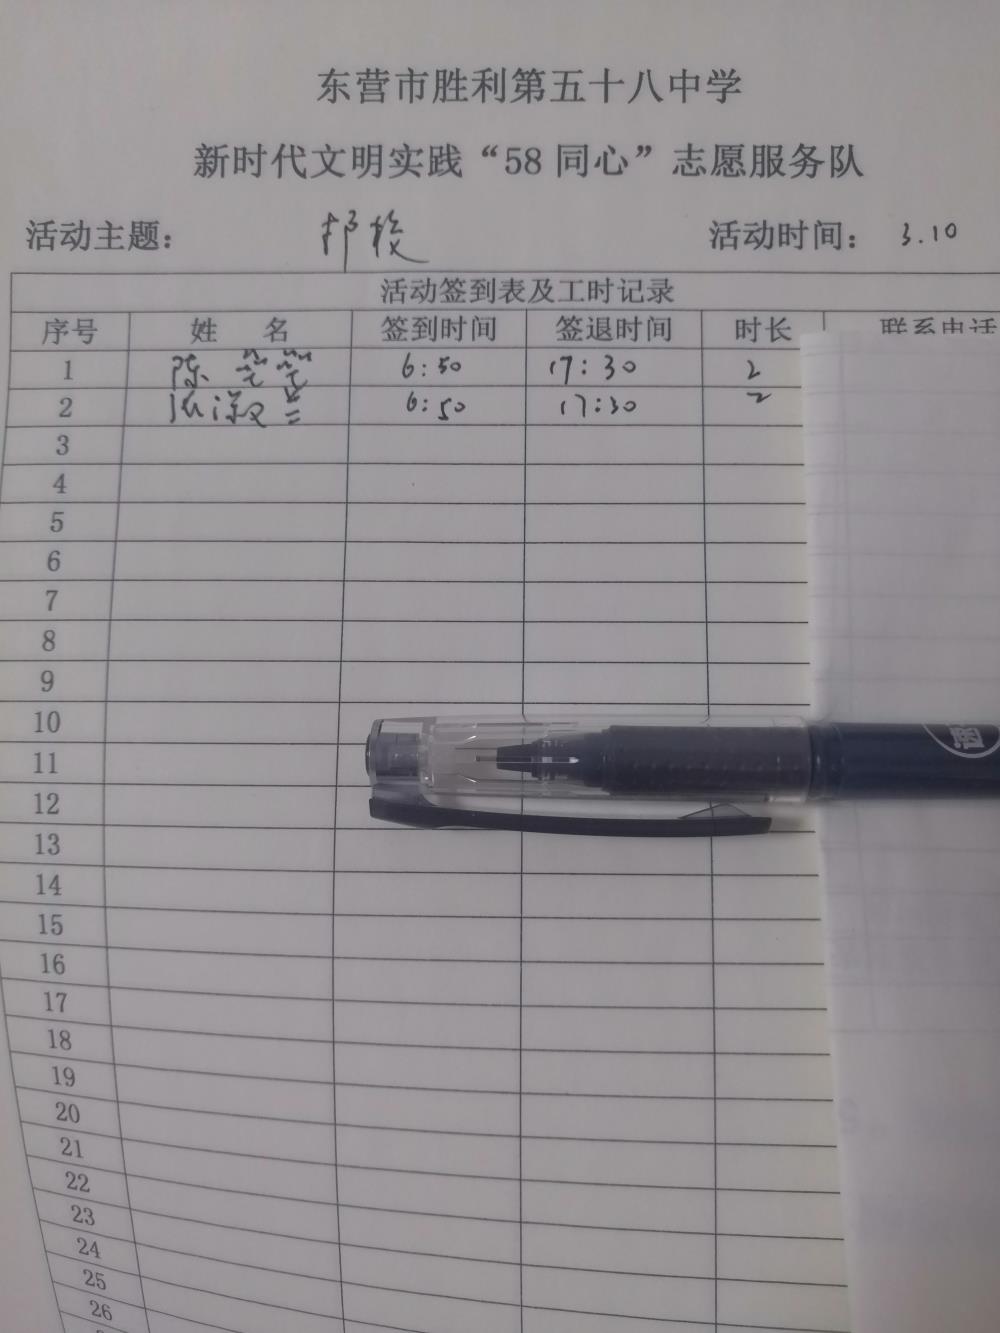 东营市胜利第五十八中学
新时代文明实践“58同心”志愿服务队
活动主题： 活动时间： 3.10
活动签到表及工时记录
序号 姓 名 签到时间 签退时间 时长 联系电话
1 陈 6:50 17:30 2
2 6:50 17:30 2
3
4
5
6
7
8
9
10
11
12
13
14
15
16
17
18
19
20
21
22
23
24
25
26